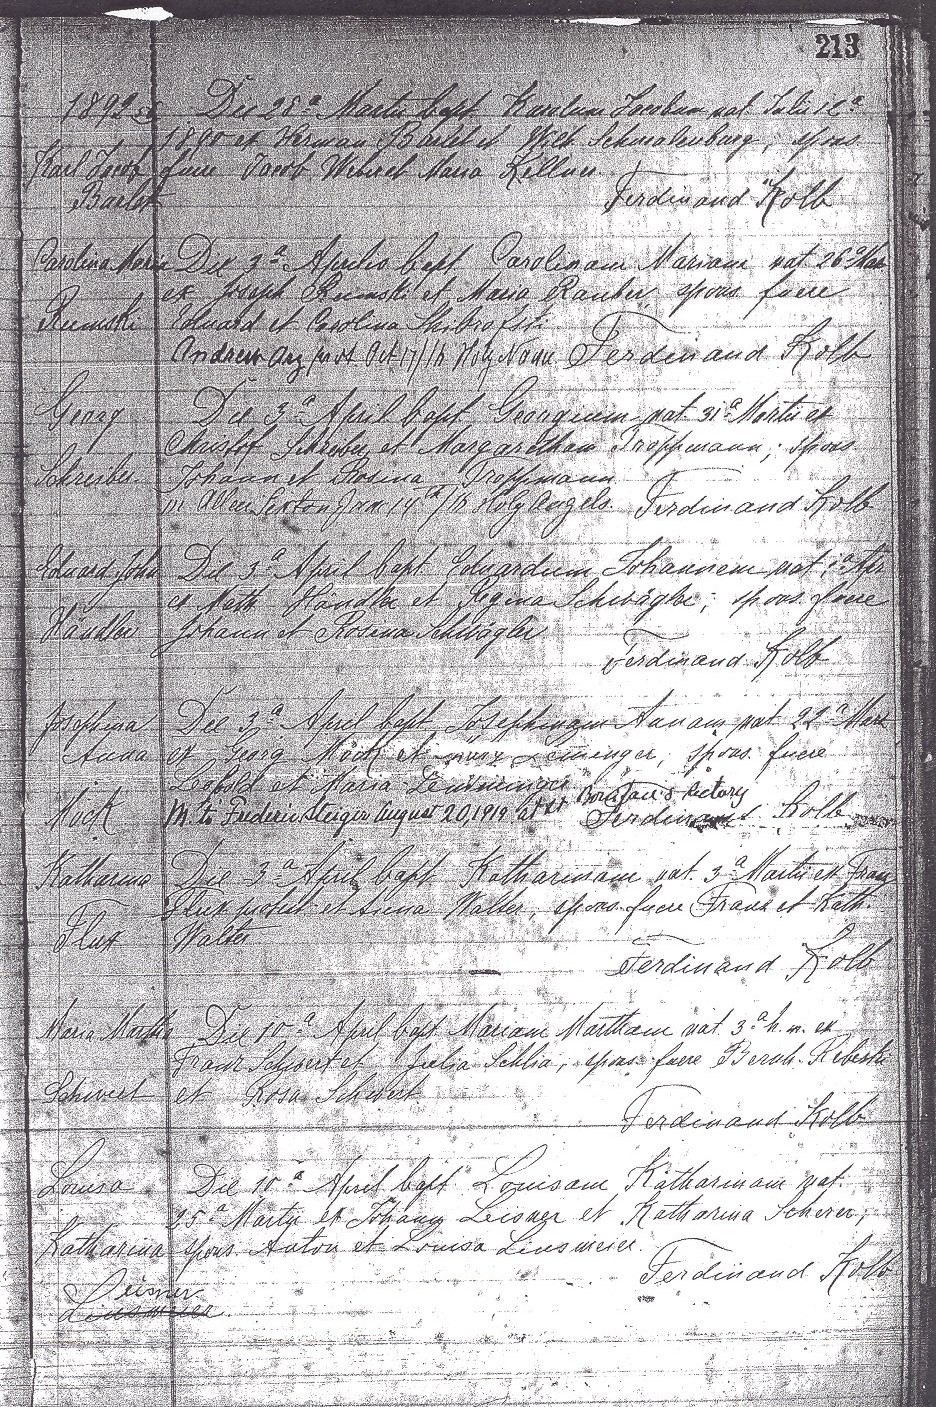 213
1892
Die 28ª Martii bapt Karolum Jacobum nat. Julii 12ª
1890 ex Herman Bartel et Wilh Schmalenburg; spons
Karl Jacob fuere Jacob Weber et Maria Kellner
Bartel Ferdinand Kolb
Carolina Maria Die 3ª Aprilis bapt Carolinam Mariam nat 26ª Mar
ex Joseph Rumski et Maria Rauber spons fuere
Rumski Eduard et Carolina
Andrew Oct 17/16 Holy Name Ferdinand Kolb
Georg Die 3ª April bapt Georgium nat 31ª Martii ex
Christof Schreiber et Margaretham Troppmann; spons
Schreiber Johann et Rosina Troppmann
m Allen Sexton Jan 14th/16 Holy Angels. Ferdinand Kolb
Eduard John Die 3ª April bapt Eduardum Johannem nat 1ª Apr
ex Math Händler et Regina Schwägler; spons fuere
Händler Johann et Rosina Schwägler
Ferdinand Kolb
Josephina Die 3ª April bapt Josephinam Annam nat 22ª Mart
Anna ex Georg Möck et Leininger, spons fuere
Leopold et Maria Leininger
Möck M. to Frederic Steiger August 20, 1919 at St Bonifac's Rectory
Ferdinand Kolb
Katharina Die 3ª April bapt Katharinam nat. 3ª Martii ex Franz
Flux et Anna Walter, spons. fuere Franz et Kath.
Flux Walter
Ferdinand Kolb
Maria Martha Die 10ª April bapt Mariam Martham nat. 3ª h. m. ex
Franz Schwert et Julia Schlia; spons fuere Bernh.
Schwert et Rosa Schwert
Ferdinand Kolb
Louisa Die 10ª April bapt Louisam Katharinam nat.
25ª Martii ex Johann Leisner et Katharina Scherer;
Katharina spons Anton et Louisa Linsmeier.
Ferdinand Kolb
Leisner
Linsmeier